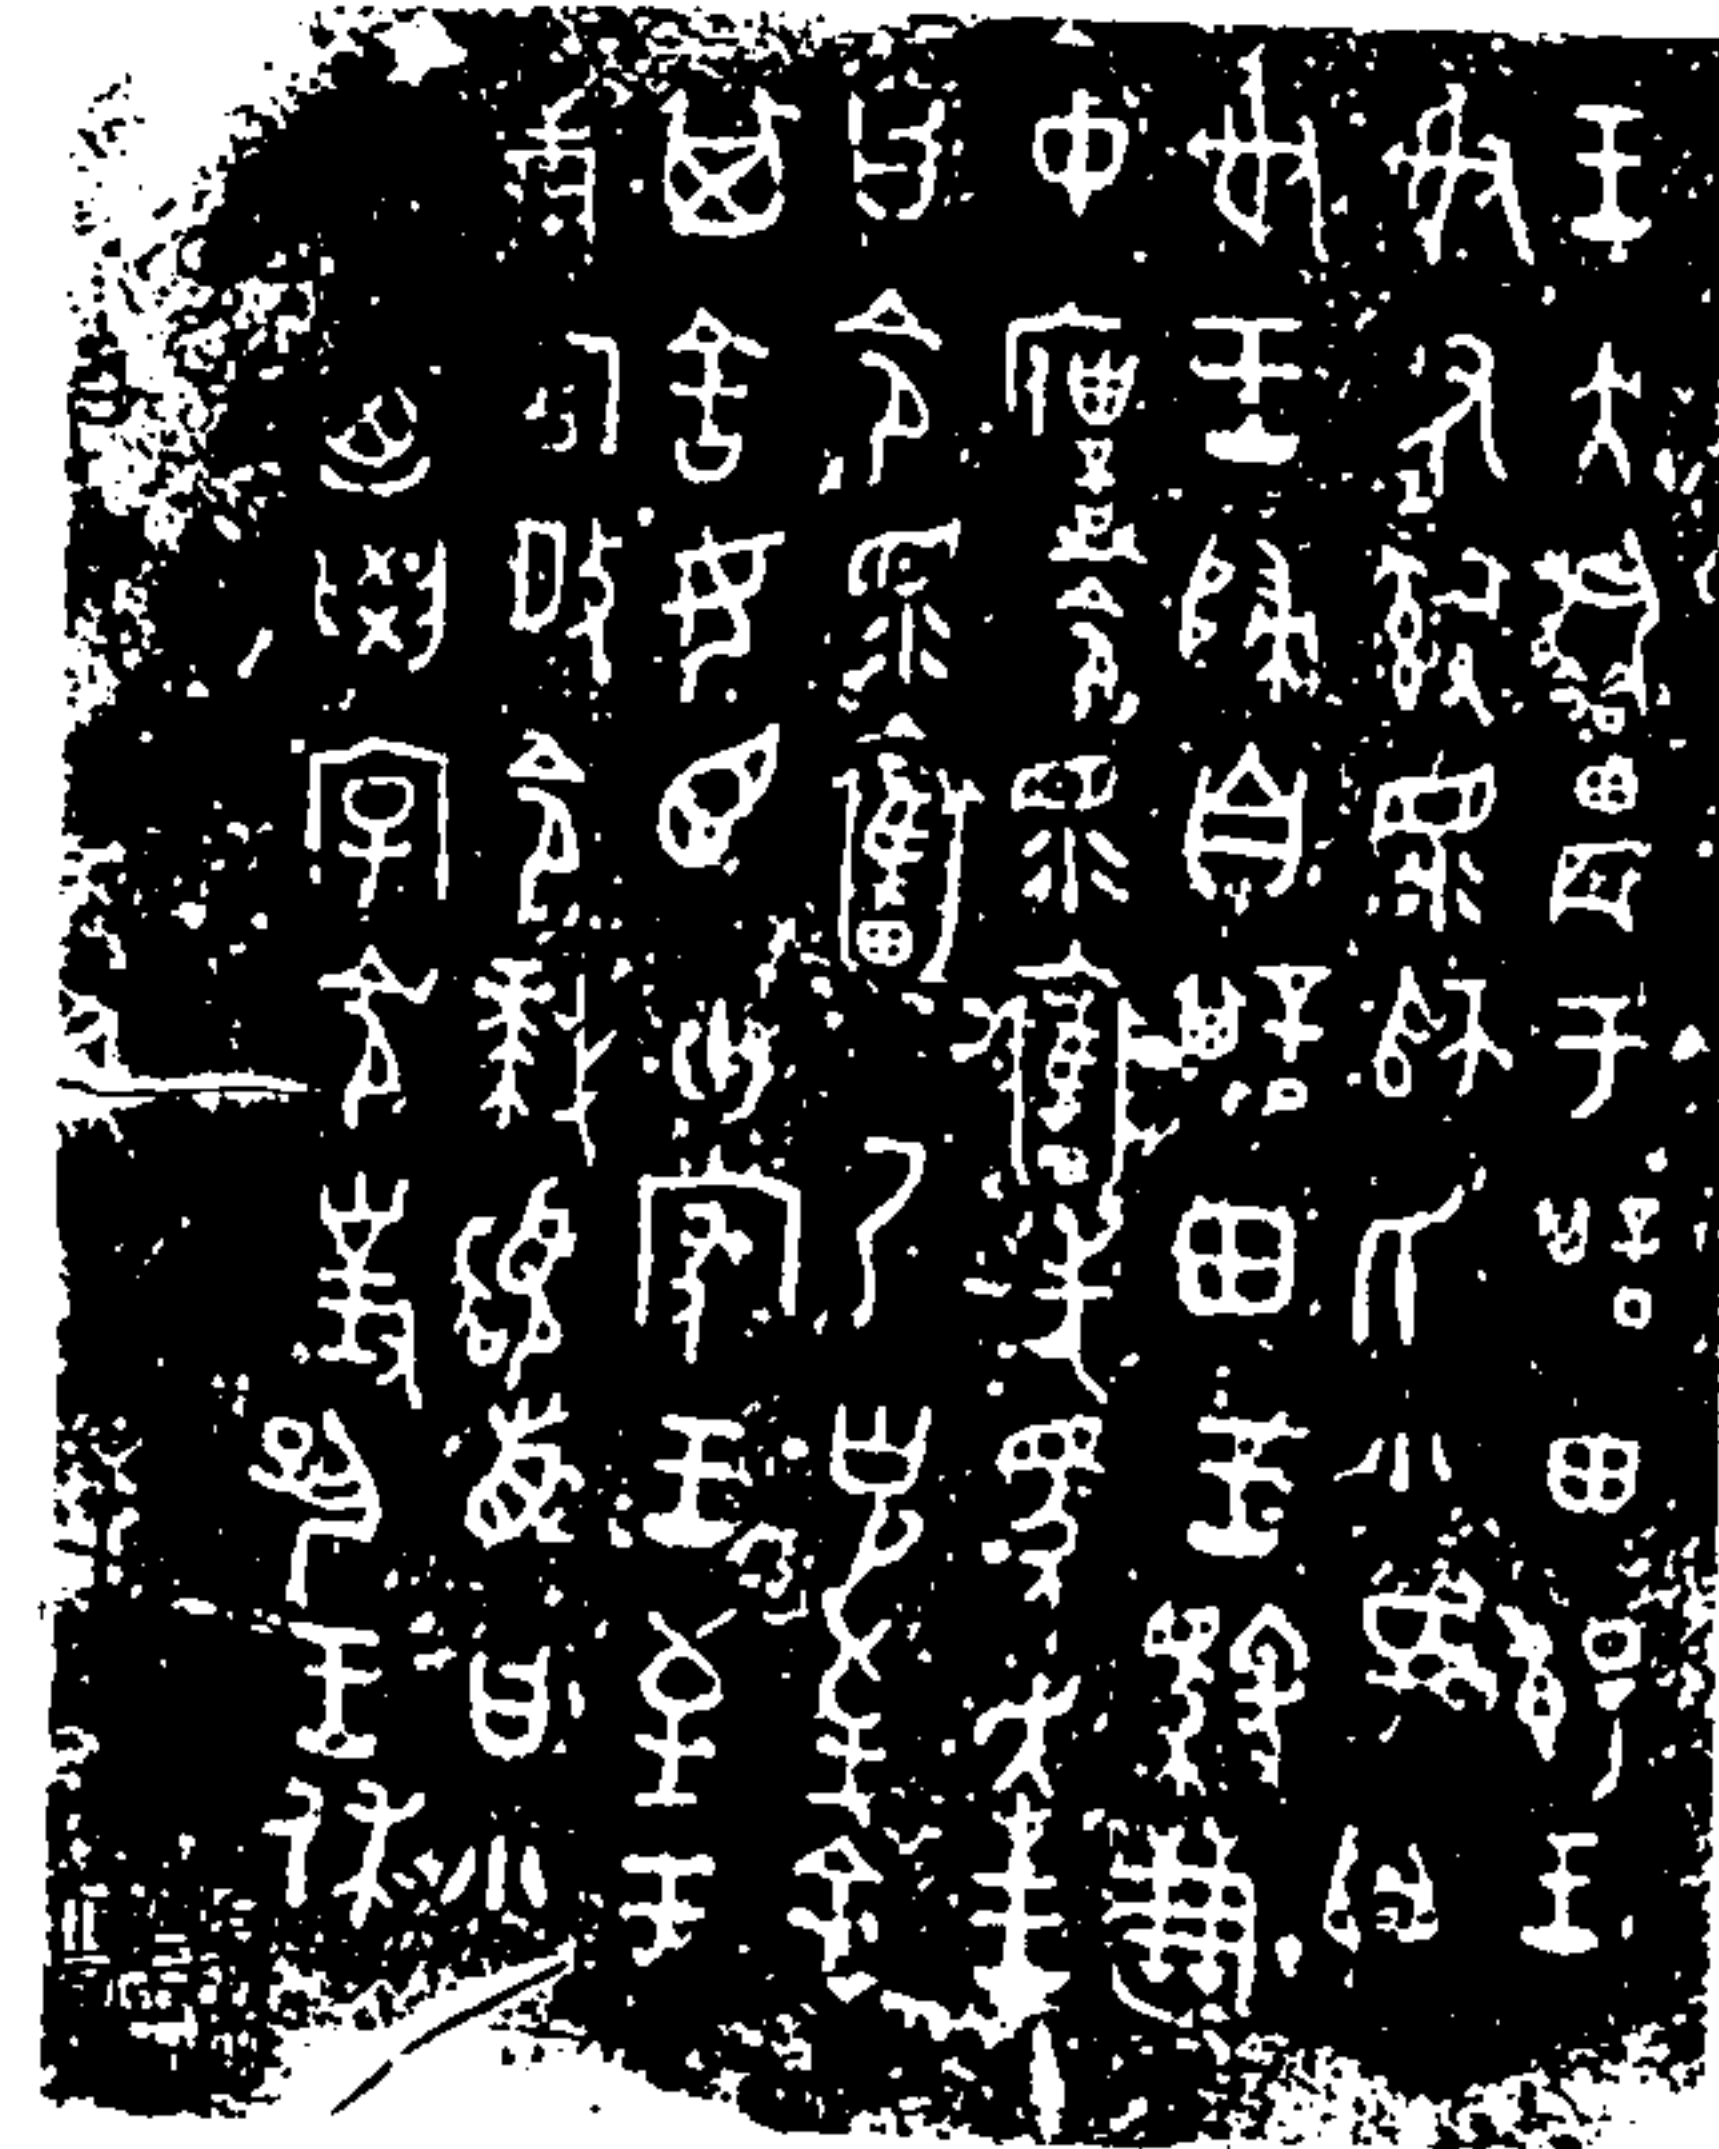 王大耤農于諆田餳王
射有𤔲眔師氏小子𬨈
射王歸自諆田王馭溓
中僕令眔奮先馬走王
曰令眔奮乃克至余
其舍女臣十家王至于
溓宮𢼛令拜稽首曰小
子廼學令對揚王休